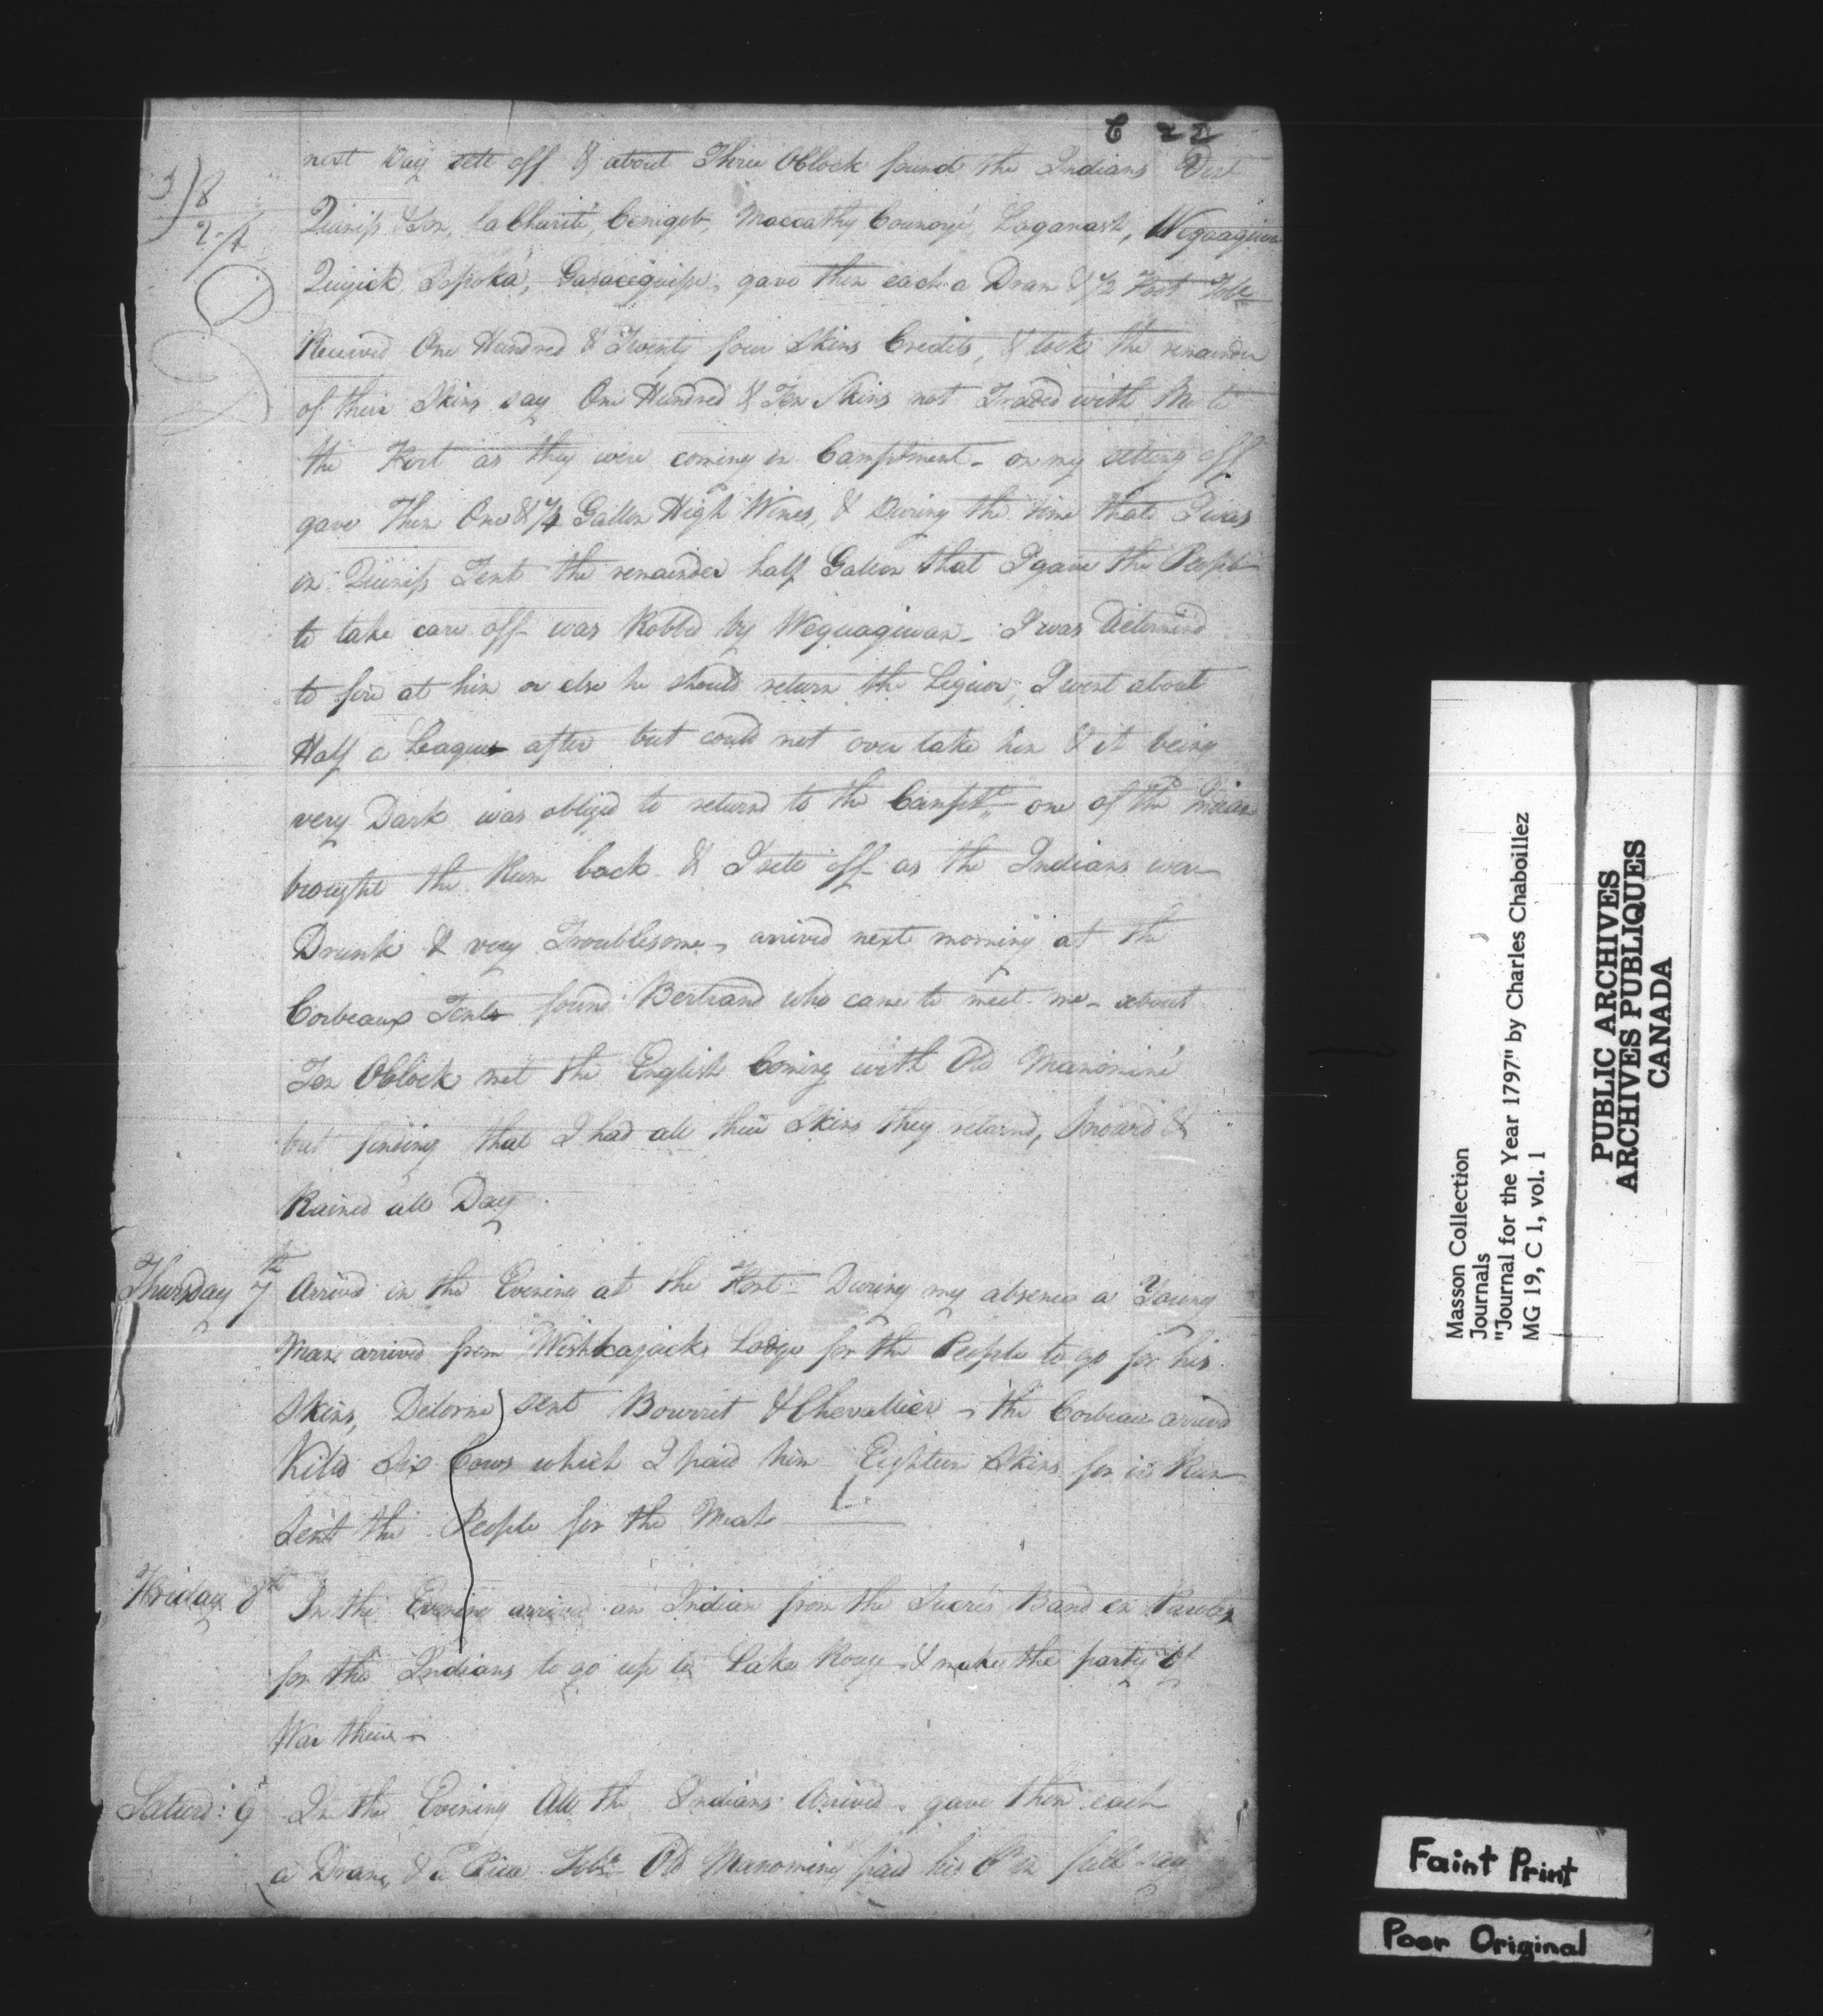 C 22
next Day sett off & about Three OClock found the Indians Vizt
Quinifs & Son, La Charité, Cenigob, Maccathy Counoyé, Laganash, Weguaguian
Quijick Sispoka, gave them each a Dram & 1/2 Foot Tobo
Received One Hundred & Twenty four Skins Credits, & took the remainder
of their Skins say One Hundred & Ten Skins not Traded with Me to
the Fort as they were coming in Campment - on my setting off
gave Them One & 1/4 Gallon High Wines, & During the time that I was
in Quinifs Tent the remainder half Gallon that I gave the People
to take care off was Robbd by Weguagiwan - I was Determined
to fire at him or else he should return the Liquor, I went about
Half a League after but could not over take him & it being
very Dark was obliged to returnd to the Campt one of the Indian
brought the Rum back & I sett off as the Indians were
Drunk & very Troublesome - arrived next morning at the
Corbeaux Tents found Bertrand who came to meet me - about
Ten OClock met the English Coming with Old Manominé
but finding that I had all their Skins they returnd, Snowed &
Rained all Day
Thursday 7th Arrived in the Evening at the Fort - During my absence a Young
Man arrived from Wishkajacks Lodge for the People to go for his
Skins, Delorme sent Bourret & Chevallier - the Corbeau arrived
Killd Six Cows which I paid him Eighteen Skins for in Rum
Sent the People for the Meat
Friday 8th In the Evening arrived an Indian from the Sucrés Band en Parole
for the Indians to go up to Lake Rouge & make the party of
War there -
Saturd: 9 In the Evening All the Indians Arrived gave them each
a Dram, & a Piece Tobo Old Manominé paid his Ct in full say
Masson Collection
Journals
"Journal for the Year 1797" by Charles Chaboillez
MG 19, C 1, vol. 1
PUBLIC ARCHIVES
ARCHIVES PUBLIQUES
CANADA
Faint Print
Poor Original